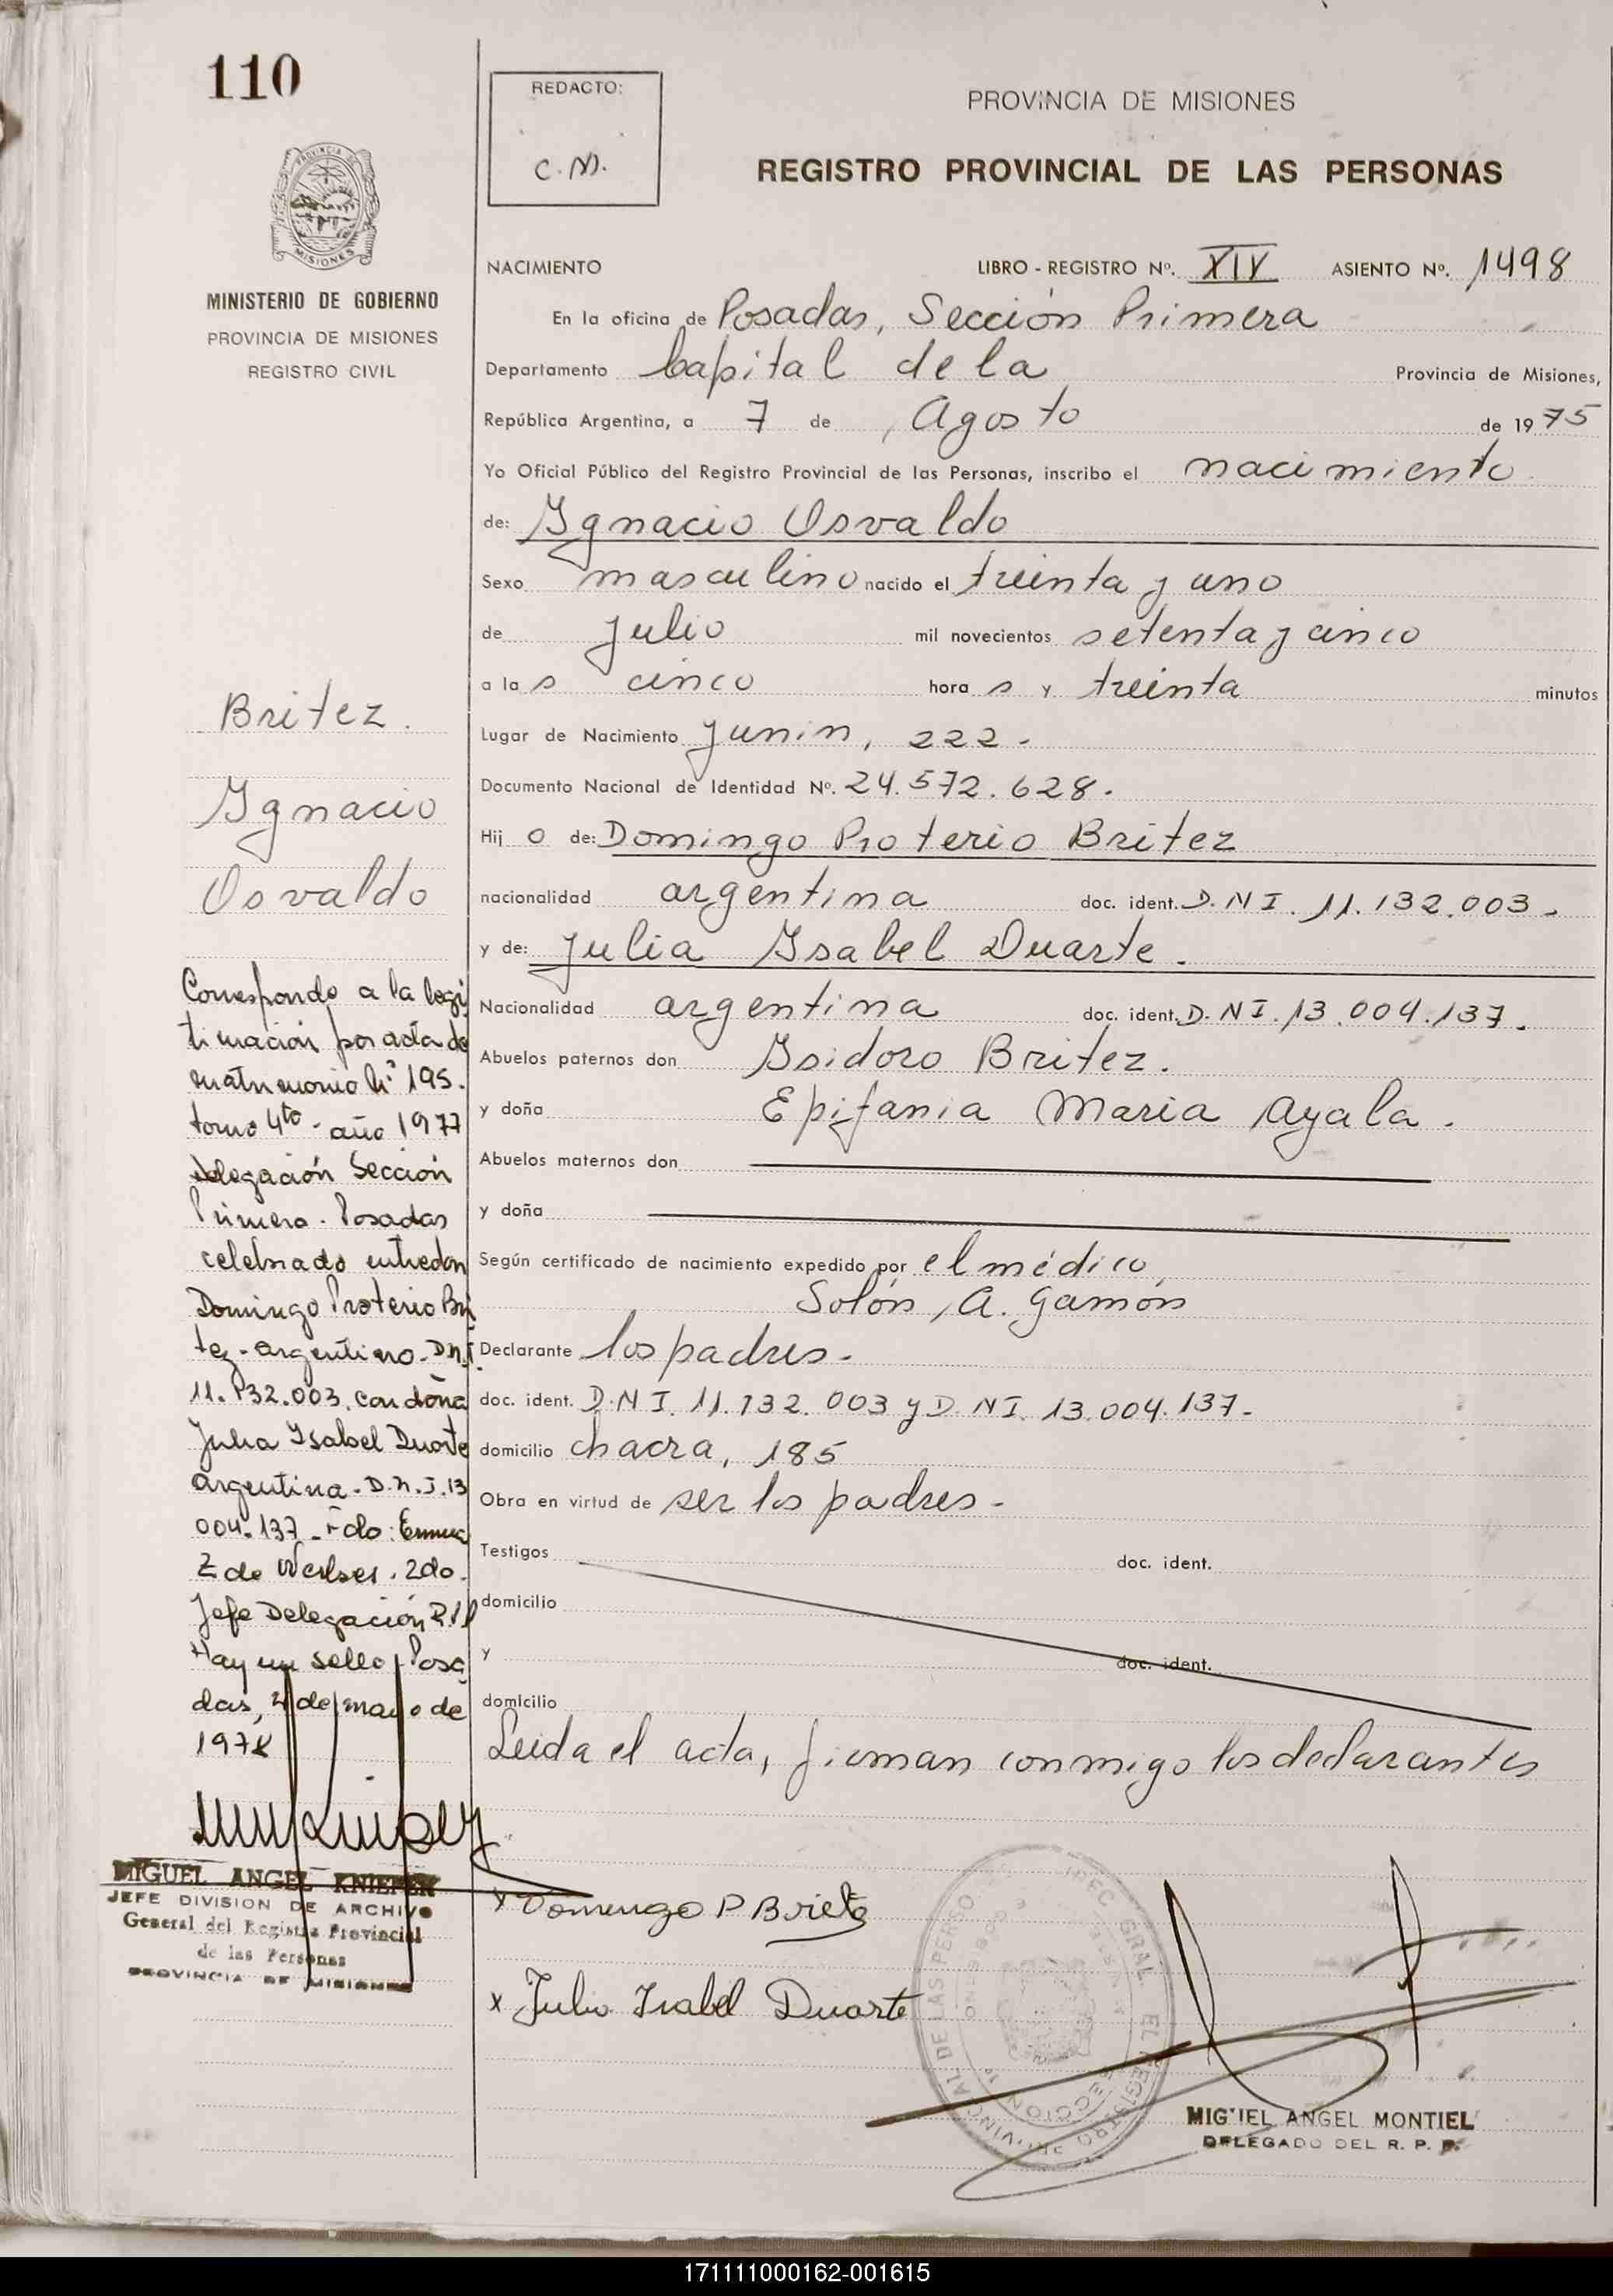 110
REDACTO:
C. M.
PROVINCIA DE MISIONES
REGISTRO PROVINCIAL DE LAS PERSONAS
PROVINCIA DE MISIONES
MINISTERIO DE GOBIERNO
PROVINCIA DE MISIONES
REGISTRO CIVIL
NACIMIENTO LIBRO - REGISTRO Nº. XIV ASIENTO Nº. 1498
En la oficina de Posadas, Sección Primera
Departamento Capital de la Provincia de Misiones,
República Argentina, a 7 de Agosto de 1975
Yo Oficial Público del Registro Provincial de las Personas, inscribo el nacimiento
de: Ygnacio Osvaldo
Sexo masculino nacido el treinta y uno
de julio mil novecientos setenta y cinco
a la s cinco hora s y treinta minutos
Lugar de Nacimiento Junin, 222.-
Documento Nacional de Identidad Nº. 24.572.628.
Hij o de: Domingo Proterio Britez
nacionalidad argentina doc. ident. D.N I. 11.132.003.
y de: Julia Ysabel Duarte.
Nacionalidad argentina doc. ident. D. N I. 13.004.137.
Abuelos paternos don Ysidoro Britez.
y doña Epifania Maria Ayala.
Abuelos maternos don
y doña
Según certificado de nacimiento expedido por el médico,
Solón, A. Gamón
Declarante los padres.-
doc. ident. D.N I. 11.132.003 y D. N I. 13.004.137.-
domicilio chacra, 185
Obra en virtud de ser los padres.-
Testigos doc. ident.
domicilio
y doc. ident.
domicilio
Leida el acta, firman conmigo los declarantes
Domingo P Britez
x Julia Isabel Duarte
MIGUEL ANGEL MONTIEL
DELEGADO DEL R. P. P.
Britez.
Ygnacio
Osvaldo
Corresponde a la legi
timación por acta de
matrimonio Nº 195.
tomo 4to - año 1977
delegación Sección
Primera. Posadas
celebrado entre don
Domingo Proterio Bri
tez - argentino - D.N.I.
11.132.003. con doña
Julia Ysabel Duarte
argentina - D.N.I. 13
004.137 - Fdo:
Z de 2do.
Jefe Delegación
Hay un sello Posa
das, de mayo de
1978
MIGUEL ANGEL KNIEPER
JEFE DIVISION DE ARCHIVO
General del Registro Provincial
de las Personas
PROVINCIA DE MISIONES
171111000162-001615